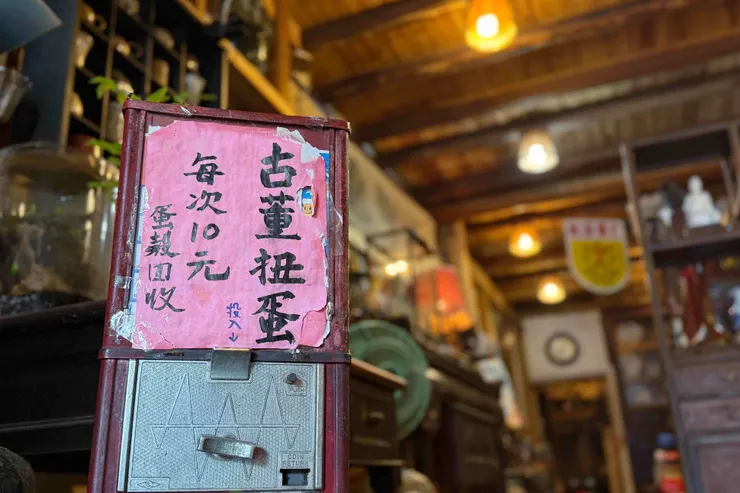 古董扭蛋
每次10元
蛋殼回收
投入↓
COIN
RETURN